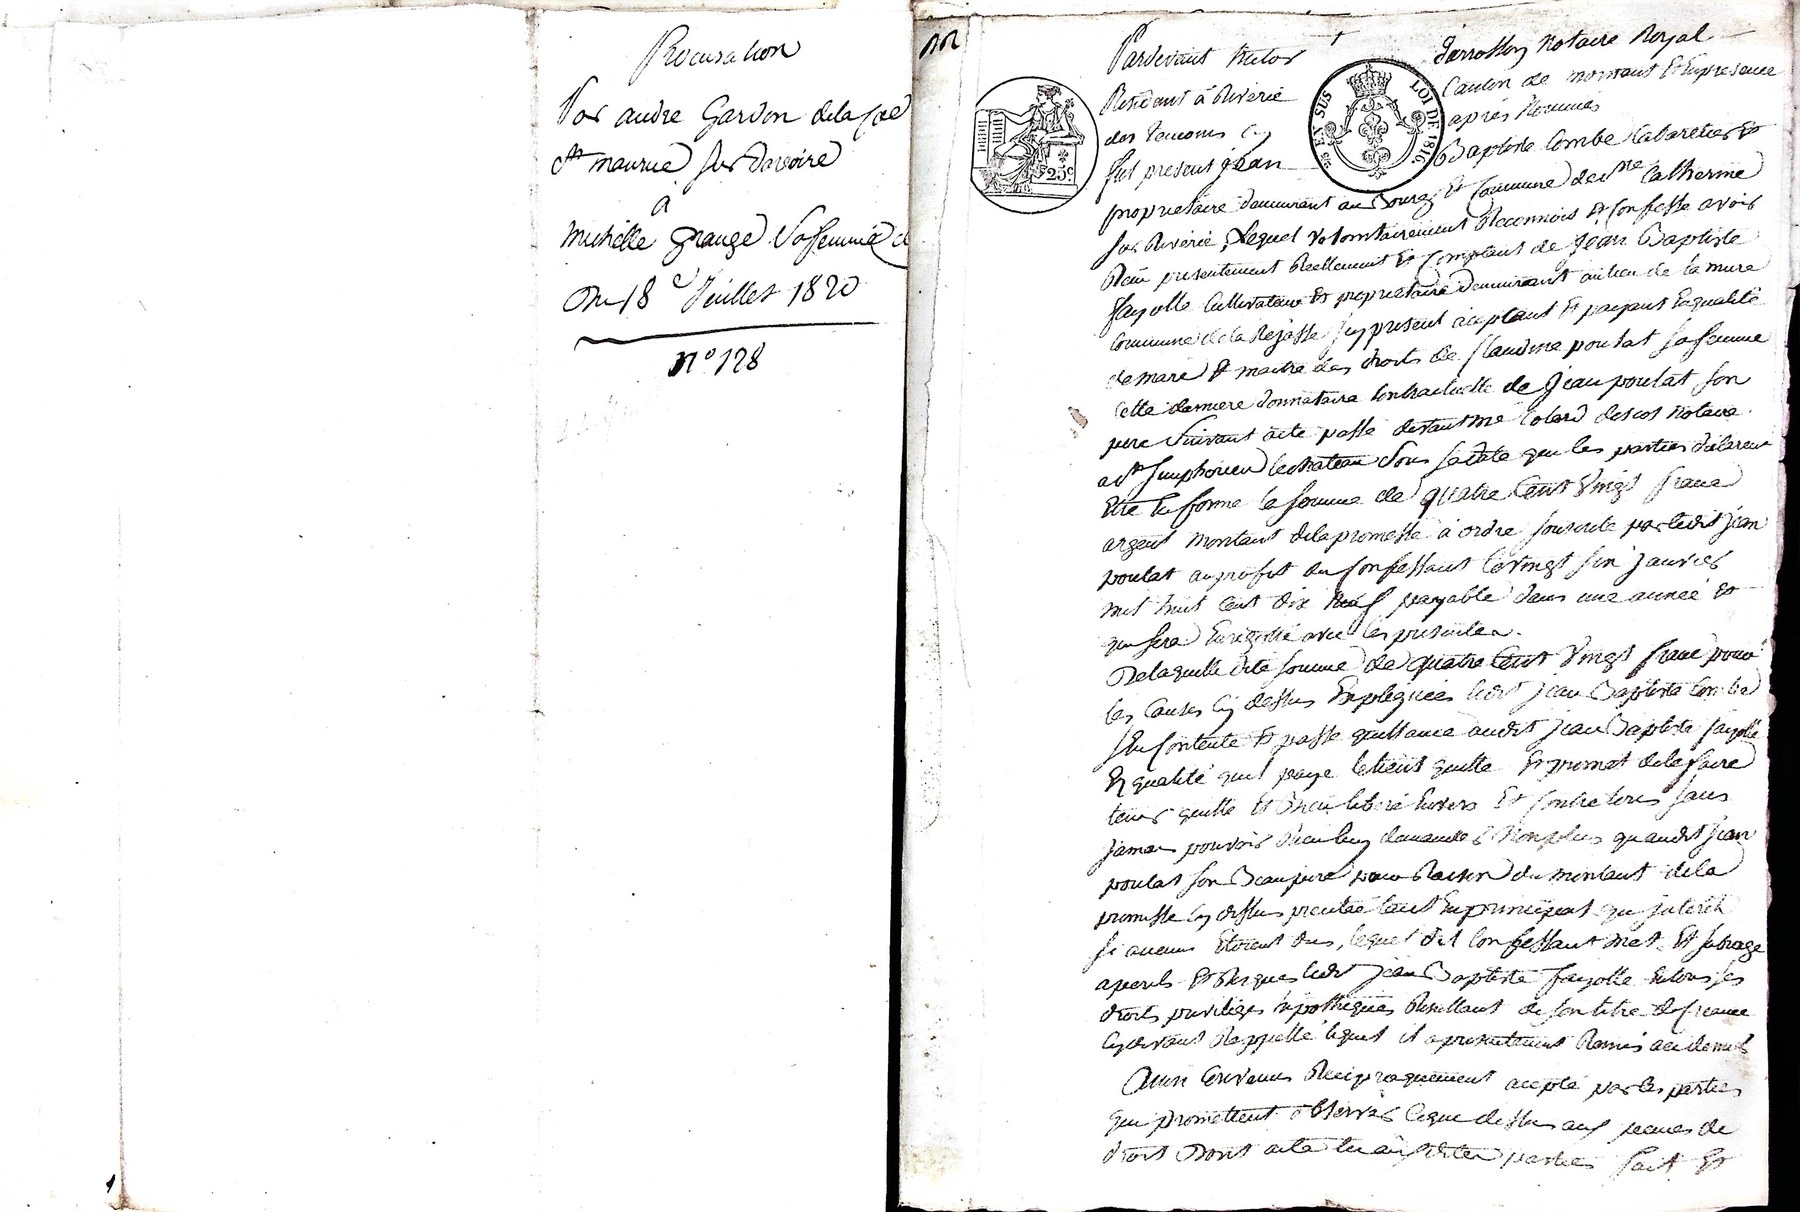 Procuration
Par andre Gardon dela Coe
St maurice sur Dargoire
à
Michelle Grange sa femme
Du 18e Juillet 1820
n° 128
Pardevant Melor
Jarrosson Notaire Royal
Residant à Riverie
Canton de mornant Et Enpresance
des temoins cy
après Nommés
fut present jean
Baptiste Combe Cabaretier Et
25c
EN SUS
LOI DE 1816
proprietaire demeurant au Bourg Et Commune de ste Catherine
sur Riverie, Lequel volontairement Reconnois Et Confesse avoir
Reçu presentement Reellement Et Comptant de Jean Baptiste
fayolle Cultivateur Et proprietaire demeurant au lieu de la mure
Commune de la Rajasse cy present aceptant Et payant En qualité
de mari Et maitre des droits de Claudine poulat sa femme
Cette derniere donnataire Contractuelle de Jean poulat son
pere suivant acte passé devant me Colard descos Notaire
a st Simphorien le chateau sous sa date que les parties declarent
Etre En forme la somme de quatre Cent Vingt franc
argent montant dela promesse à ordre souscrite par ledit jean
poulat au profit du Confessant le vingt six janvier
mil huit Cent dix neuf payable dans une année Et
qui sera Enregistré avec les presentes.
De laquelle dite somme de quatre Cent Vingt franc pour
les Causes cy dessus Expliquées ledit jean Baptiste Combe
s'En Contente Et passe quittance audit jean Baptiste fayolle
En qualité quil paye le tient quitte Et promet dele faire
tenir quitte Et Bien liberé Envers Et Contre tous sans
jamais pouvoir Rien luy demander Non plus qu'audit jean
poulat son Beaupere pour Raison du montant dela
promesse cy dessus precitée tant En principal qu'interets
si aucuns Etoient dus, lequel dit Confessant met Et subroge
a perils Et Risques ledit jean Baptiste fayolle En tous ses
droits privileges hipotheques Resultant de son titre de Creance
cy devant Rappellé lequel il a presentement Remis
Ainsi Convenu Reciproquement acepté par les parties
qui promettent observer Ceque dessus aux peines de
droit Dont acte lu aux dites parties fait Et